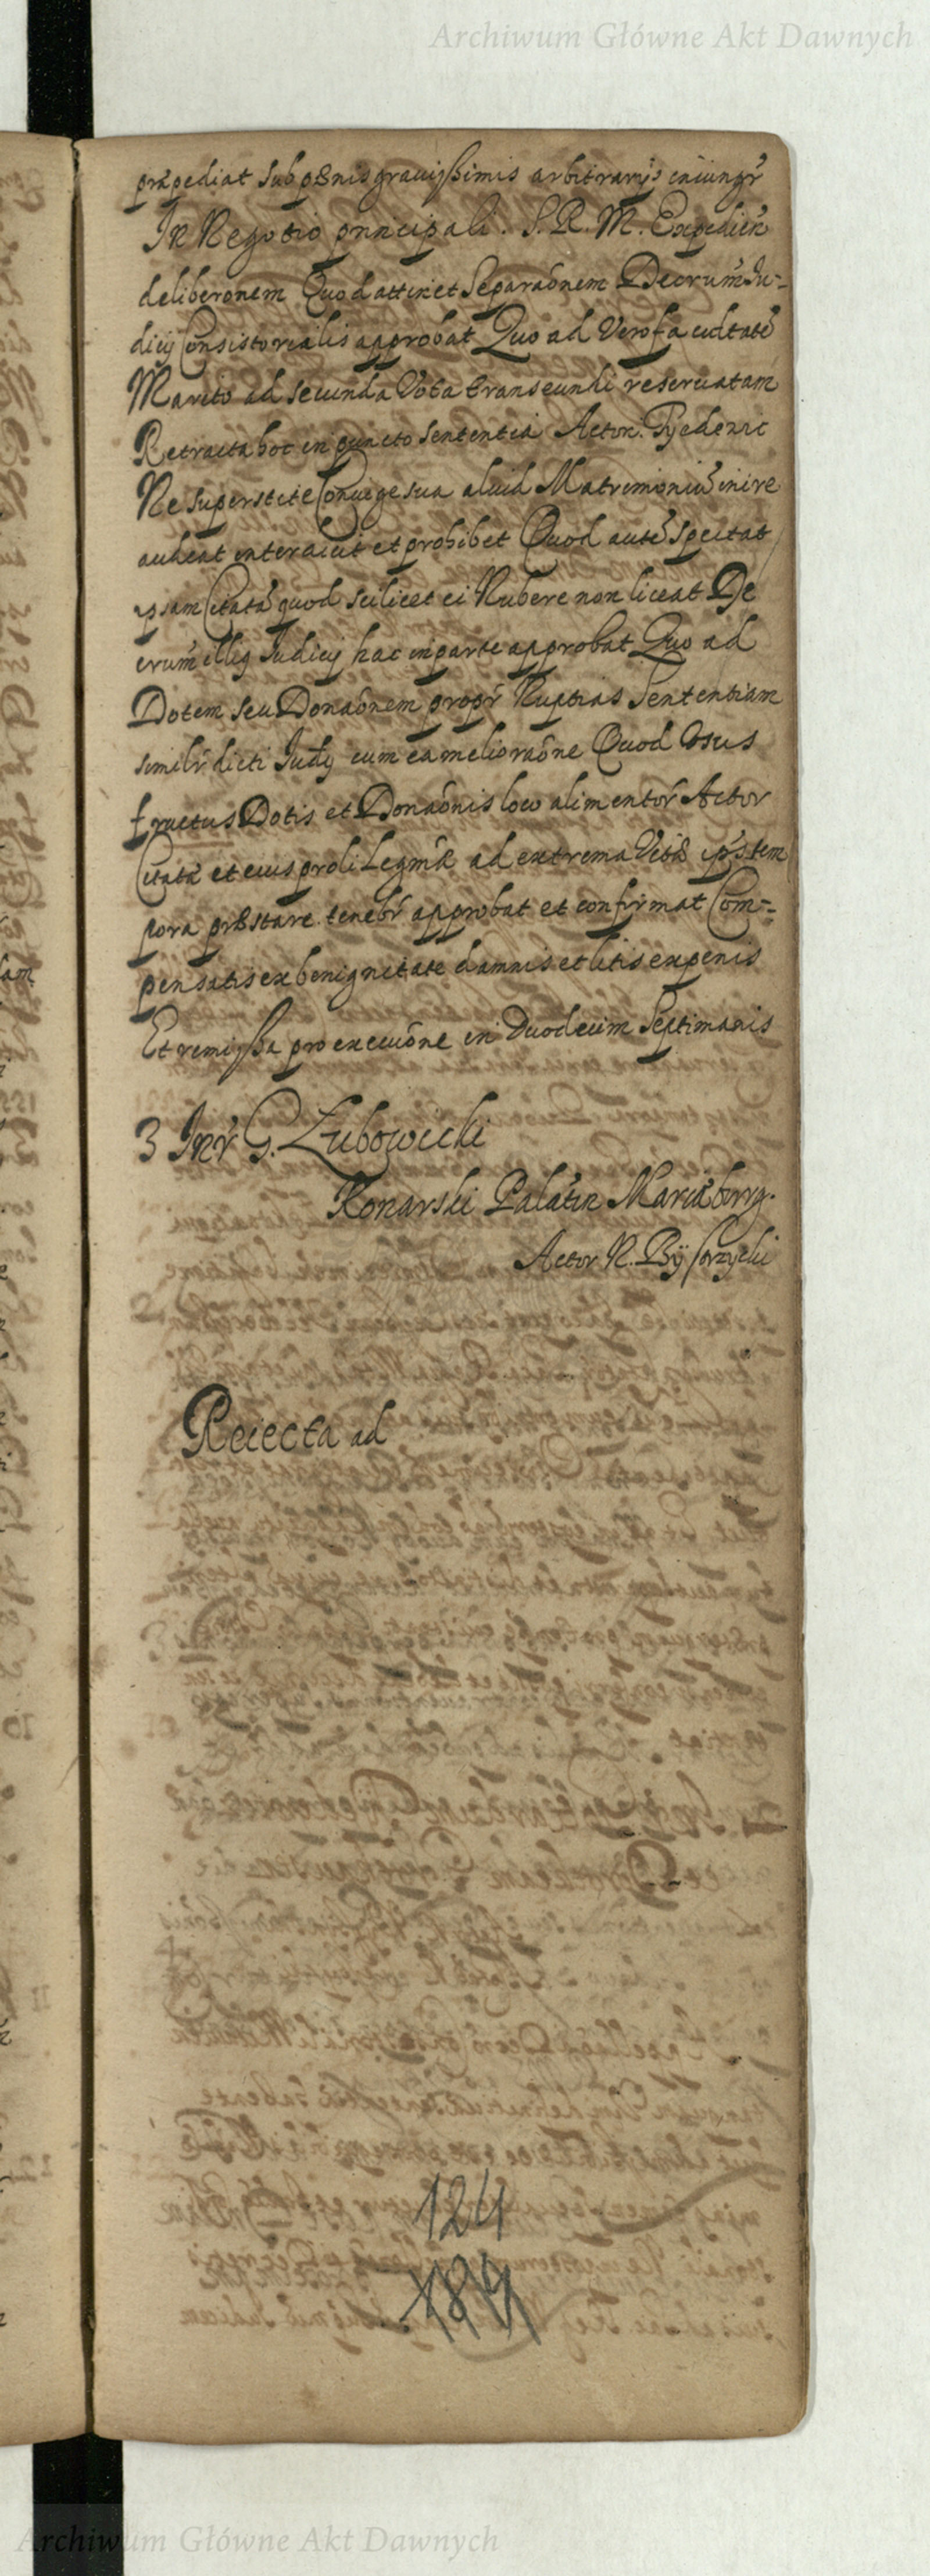 Archiwum Główne Akt Dawnych
præpediat sub pœnis gravissimis arbitrarijs iniungr̃
In Negotio prīncipali. S. R. M. Expedień
deliberonem Quod attinet Separaõnem Decrum̃ Ju-
dicij Consistorialis approbat Quo ad Vero facultatẽ
Marito ad secunda Vota transeundi reservatam
Retracta hoc in puncto sententia Actori
Ne superstite Coniuge sua aliud Matrimoniũ inire
audeat interdicit et prohibet Quod autẽ spectat
ipsam Citatã quod scilicet ei Nubere non liceat De
crum̃ illig Judicij hac in parte approbat Quo ad
Dotem seu Donaõnem propr̃ Nuptias Sententiam
similr̃ dicti Judij cum ea melioraõne Quod Vsus
fructus Dotis et Donaõnis loco alimentor̃ Actor
Citatã et eius proli Legm̃æ ad extrema Vitæ ips. tem
pora præstare tenebr̃ approbat et confirmat Com-
pensatis ex benignitate damnis et litis expenis
Et remissa pro execuõne in Duodecim Septimanis
3 Intr̃ G. Łubowicki
Konarski Palatin Mariæburg.
Actor N. Bÿstrzycki
Reiecta ad
124
184
Archiwum Główne Akt Dawnych